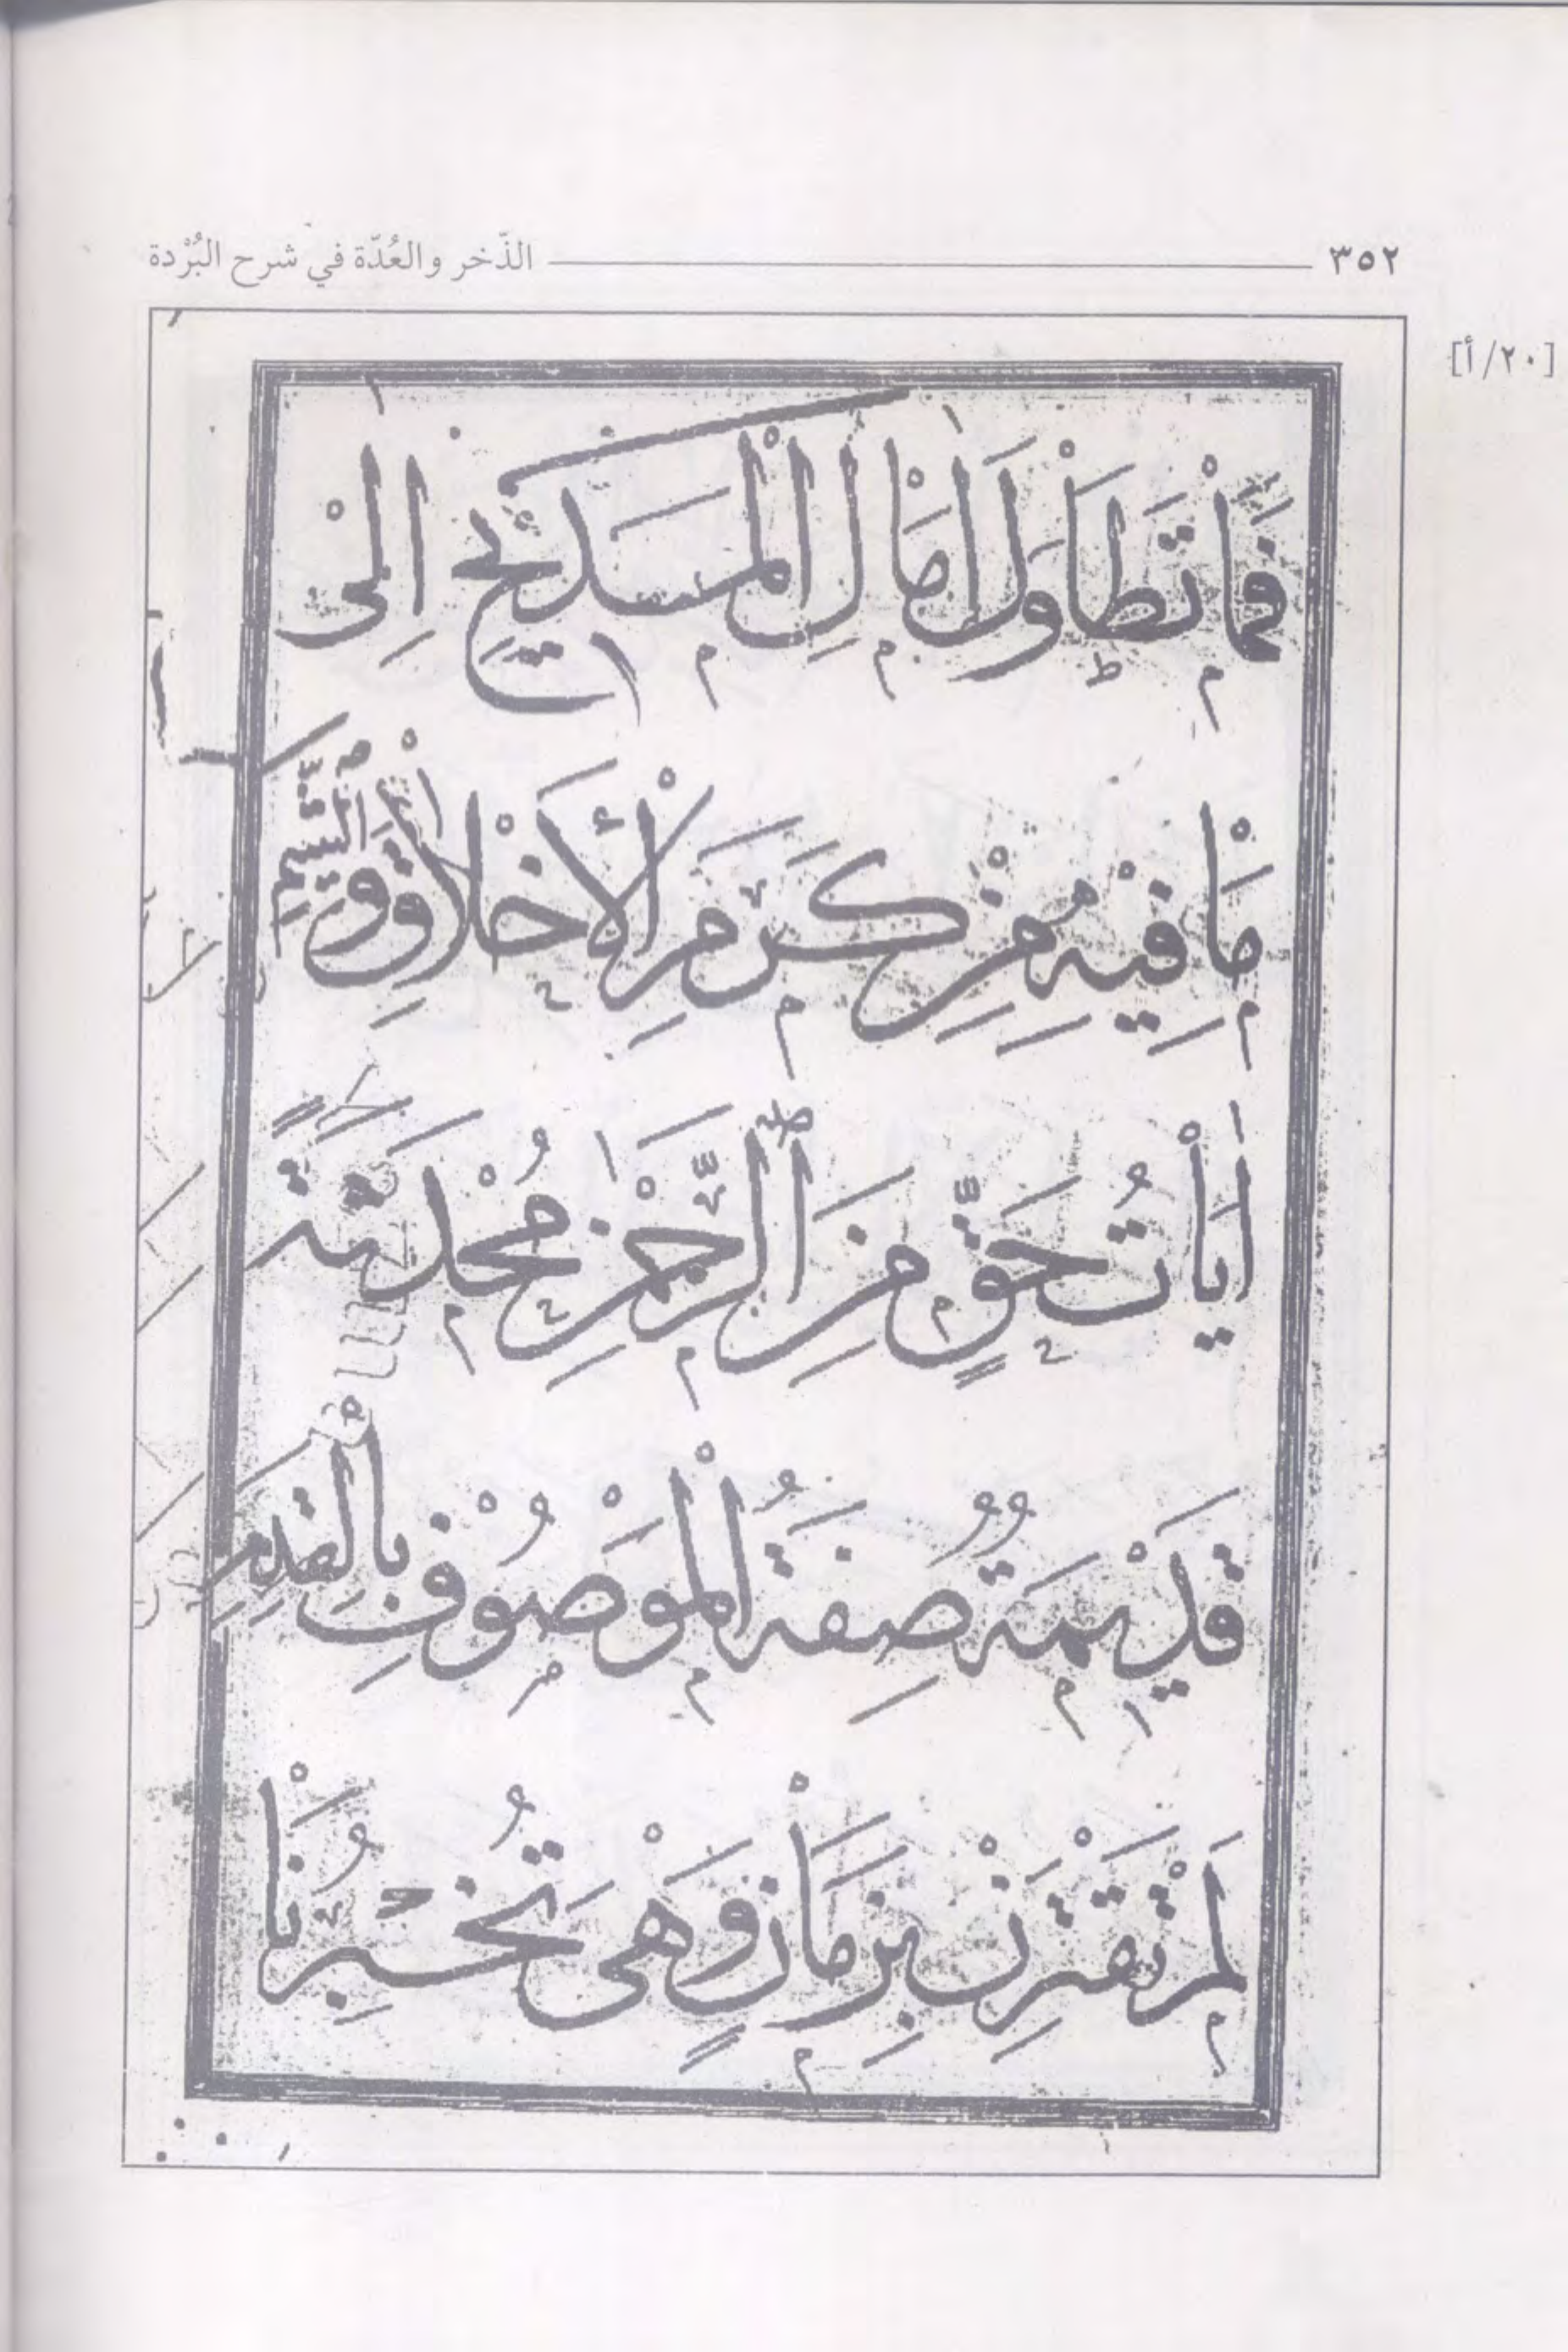 ٣٥٢ الذّخر والعُدّة في شرح البُرْدة
[٢٠/أ]
فَمَاْ تَطَاْوَلَ اٰمَاْلِ الْمَدِيْحِ اِلٰىْ
مَاْ فِيْهِ مِنْ كَرَمِ الْأَخْلَاْقِ وَالشِّيَمِ
اٰيَاْتُ حَقٍّ مِنَ الرَّحْمٰنِ مُحْدَثَةً
قَدِيْمَةٌ صِفَةُ الْمَوْصُوْفِ بِالْقِدَمِ
لَمْ تَقْتَرِنْ بِزَمَاْنٍ وَهْىَ تُخْبِرُنَاْ